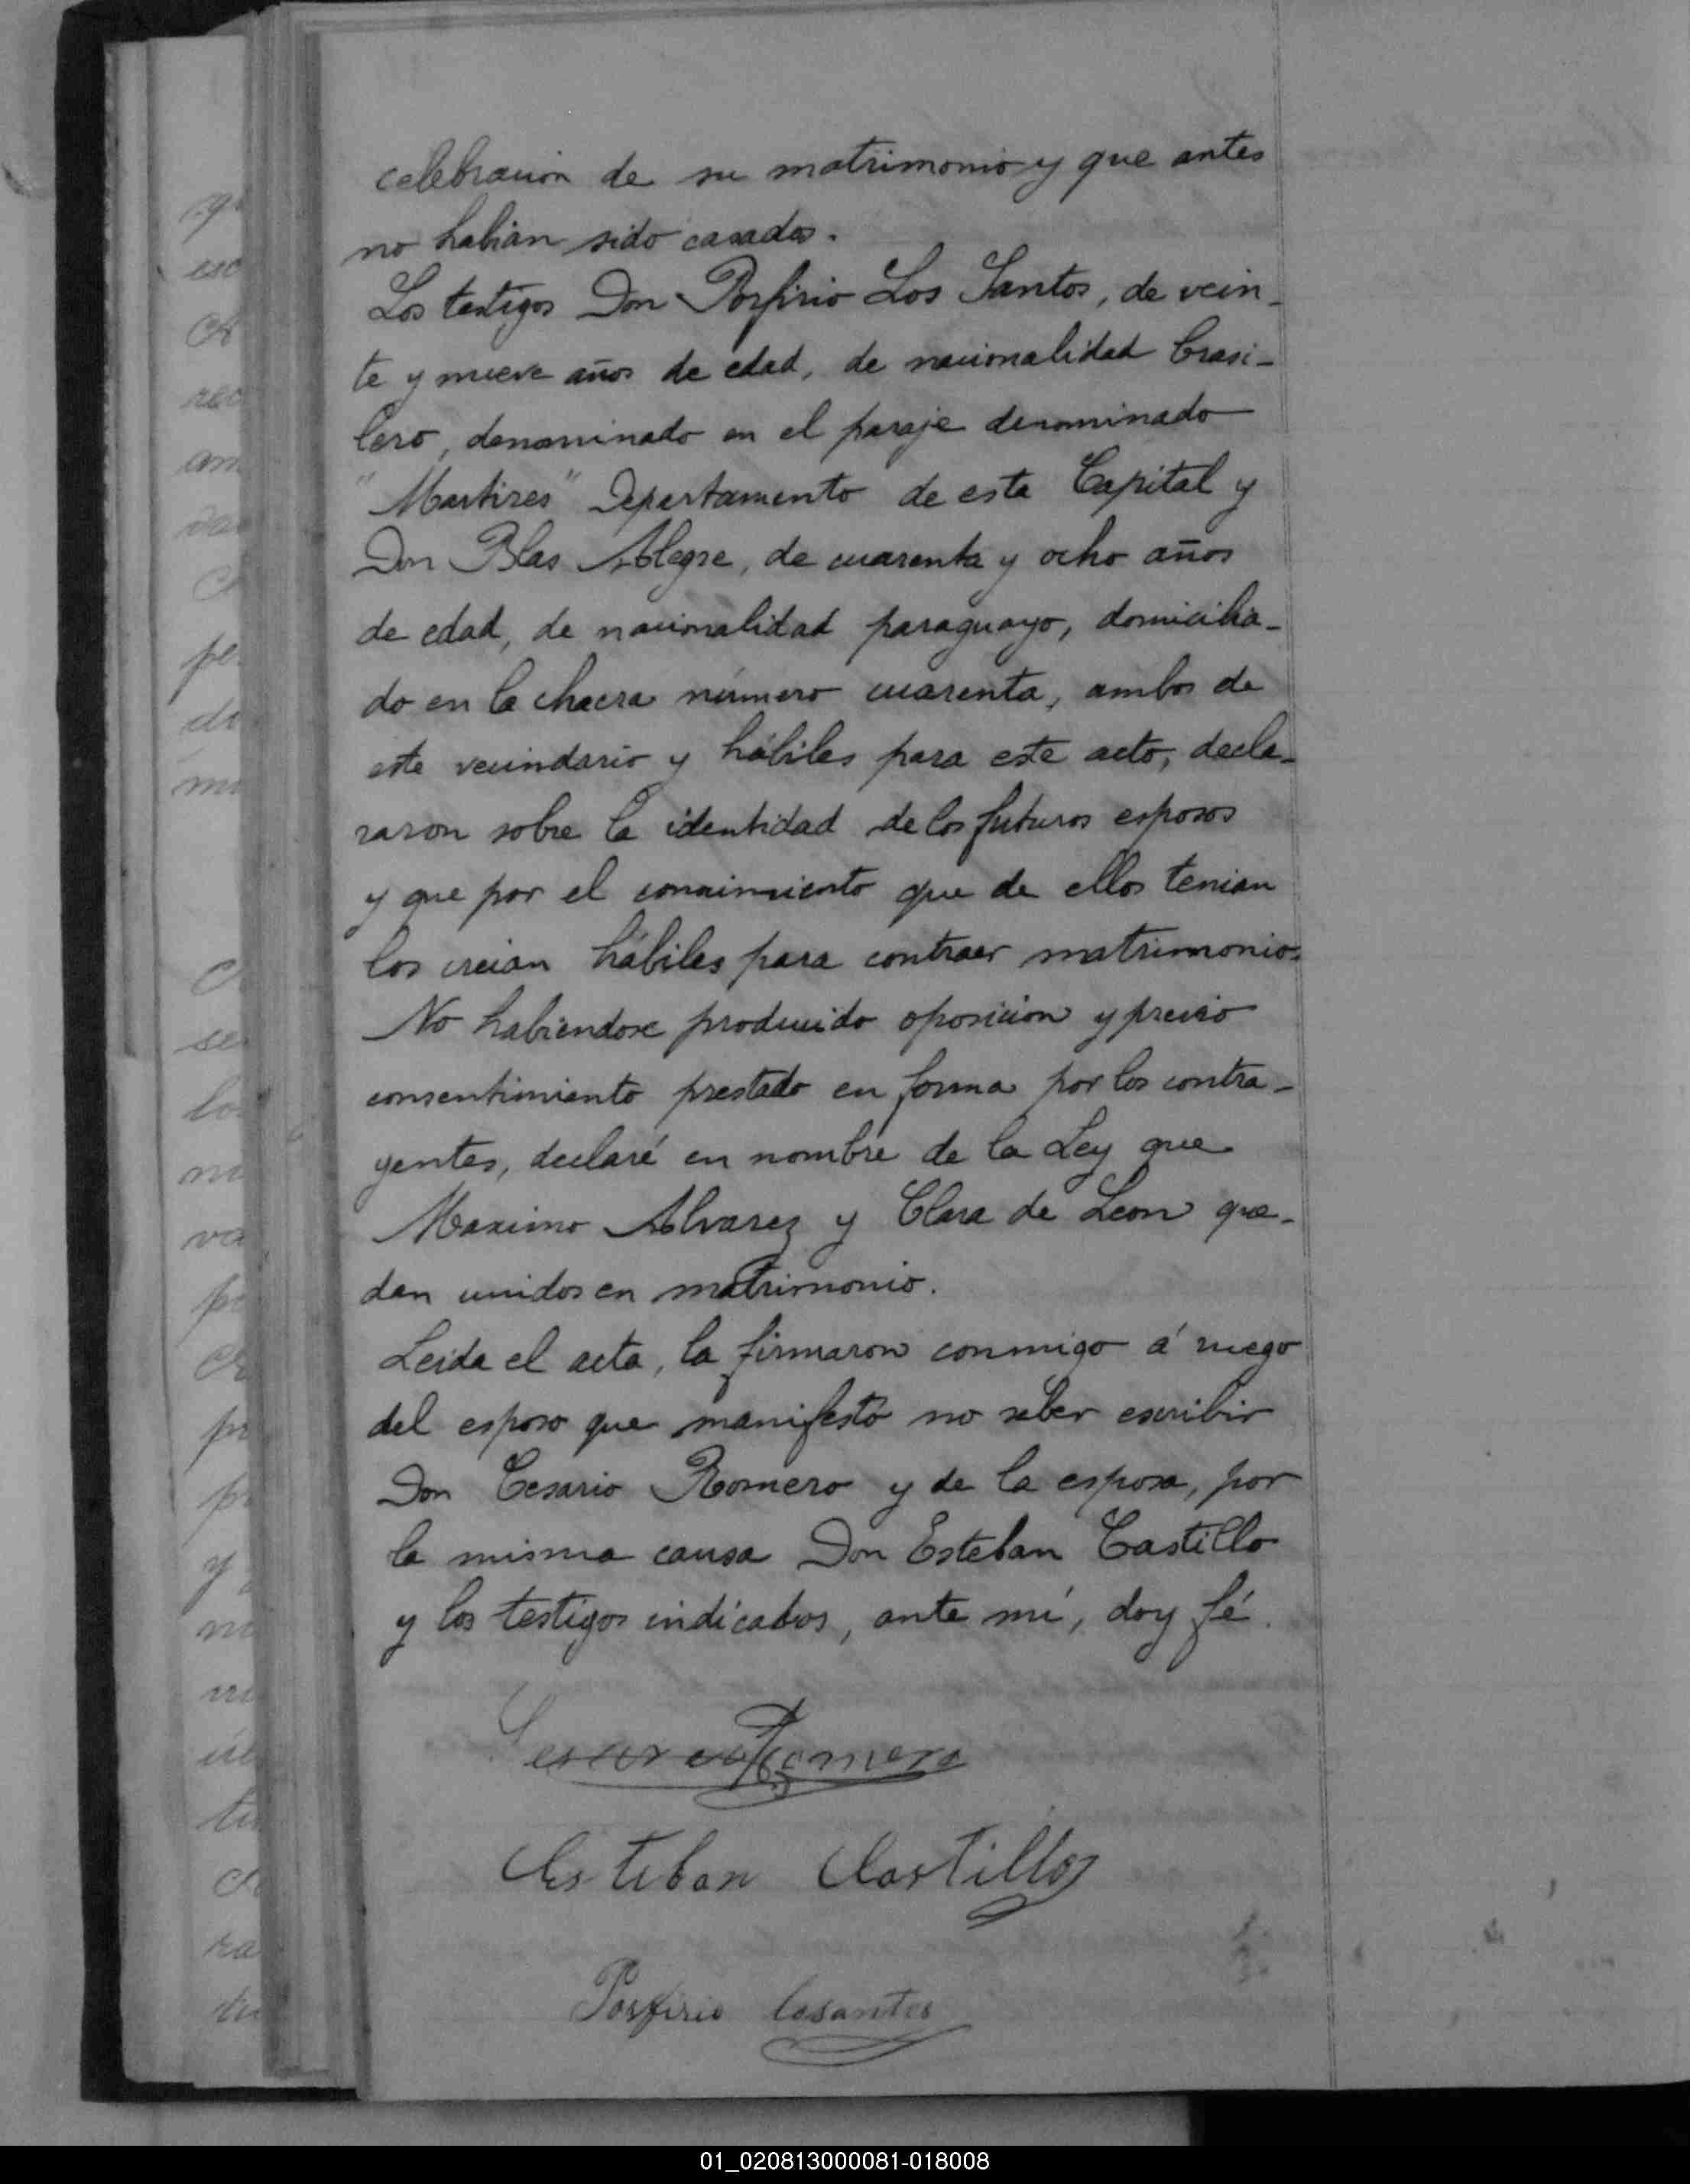 celebracion de su matrimonio y que antes
no habian sido casados.
Los testigos Don Porfirio Los Santos, de vein-
te y nueve años de edad, de nacionalidad brasi-
lero, denominado en el paraje denominado
"Martires" Departamento de esta Capital y
Don Blas Alegre, de cuarenta y ocho años
de edad, de nacionalidad paraguayo, domicilia-
do en la chacra número cuarenta, ambos de
este vecindario y hábiles para este acto, decla-
raron sobre la identidad de los futuros esposos
y que por el conocimiento que de ellos tenian
los creian hábiles para contraer matrimonio.
No habiendose producido oposicion y previo
consentimiento prestado en forma por los contra-
yentes, declaré en nombre de la Ley que
Maximo Alvarez y Clara de Leon que-
dan unidos en matrimonio.
Leida el acta, la firmaron conmigo á ruego
del esposo que manifestó no saber escribir
Don Cesario Romero y de la esposa, por
la misma causa Don Esteban Castillo
y los testigos indicados, ante mí, doy fé.
Cesareo Romero
Esteban Castillo
Porfirio Losantos
01_020813000081-018008